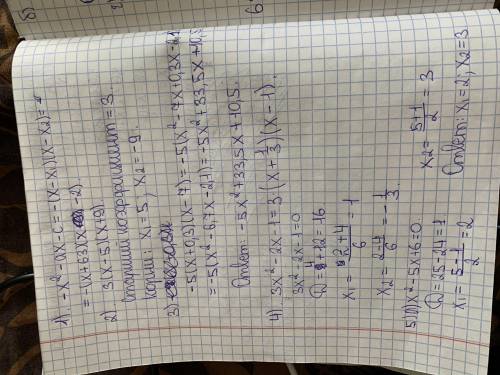 1) -x²-ax-c = -(x-x₁)(x-x₂)=
= -(x+63)(x-2)
2) 3(x-5)(x+9).
Старший коэффициент = 3.
Корни: x₁=5, x₂=-9.
3)
-5(x+0,3)(x-7) = -5(x²-7x+0,3x-2,1)
= -5(x²-6,7x-2,1) = -5x²+33,5x+10,5
Ответ: -5x²+33,5x+10,5.
4) 3x²-2x-1=3(x+1/3)(x-1).
3x²-2x-1=0
D=4+12=16
x₁= (2+4)/6 = 1
x₂= (2-4)/6 = -1/3.
5) x²-5x+6=0.
D=25-24=1
x₁= (5-1)/2 = 2
x₂= (5+1)/2 = 3.
Ответ: x₁=2; x₂=3
б)
2)
6